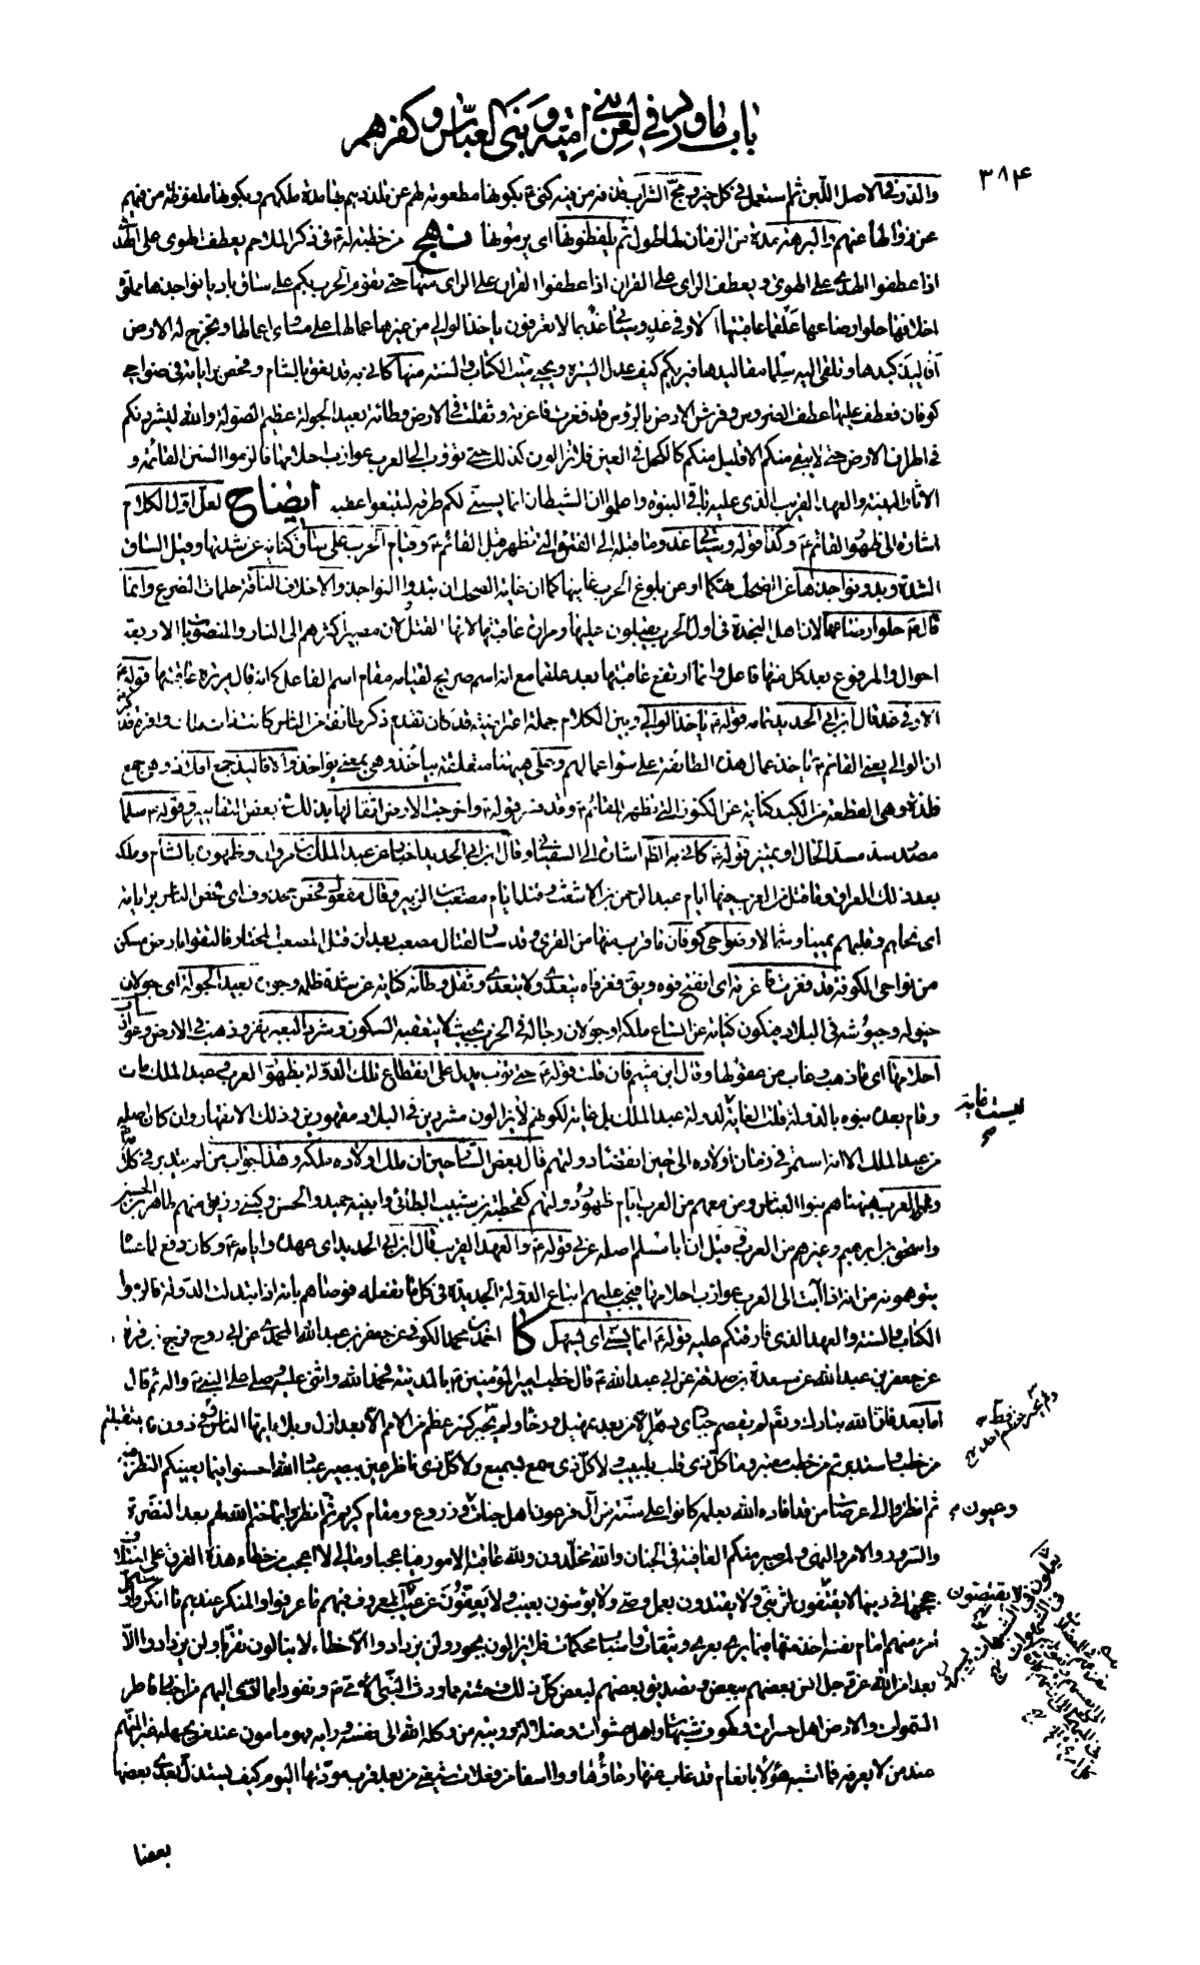 باب ما ورد في لعن بني امية وبني العباس وكفرهم
٣٨٤
والذر في الاصل اللبن ثم استعمل في كل خير ومج الشراب قذفه من فيه كنى عن كونها مطعومة لهم عن تلذذهم بها مدة ملكهم وبكونها ملفوظة من فيهم
عن زوالها عنهم والبرهة مدة من الزمان لها طول ثم يلفظونها اي يرمونها نهج من خطبة له ع في ذكر الملاحم يعطف الهوى على الهدى
اذا عطفوا الهدى على الهوى ويعطف الراي على القران اذا عطفوا القران على الراي منها حتى تقوم الحرب بكم على ساق باديا نواجذها مملوة
اخلافها حلوا رضاعها علقما عاقبتها الا وفي غد وسياتي غد بما لا تعرفون ياخذ الوالي من غيرها عمالها على مساوي اعمالها وتخرج له الارض
افاليذ كبدها وتلقي اليه سلما مقاليدها فيريكم كيف عدل السيرة ويحيي ميت الكتاب والسنة منها كاني به قد نعق بالشام وفحص براياته في ضواحي
كوفان فعطف عليها عطف الضروس وفرش الارض بالرؤس قد فغرت فاغرته وثقلت في الارض وطاته بعيد الجولة عظيم الصولة والله ليشردنكم
في اطراف الارض حتى لا يبقى منكم الا قليل منكم كالكحل في العين فلا تزالون كذلك حتى تؤوب الى العرب عوازب احلامها فالزموا السنن القائمة و
الاثار البينة والعهد القريب الذي عليه باقي النبوة واعلموا ان الشيطان انما يسني لكم طرقه لتتبعوا عقبه ايضاح لعل اول الكلام
اشارة الى ظهور القائم ع وكذا قوله وسياتي غد وما قبله الى الفتن التي تظهر قبل القائم ع وقيام الحرب على ساق كناية عن شدتها وقيل الساق
الشدة وبدو نواجذها عن الضحك تهكما او عن بلوغ الحرب غايتها كما ان غاية الضحك ان تبدو النواجذ والاخلاف للناقة حلمات الضرع وانما
قال ع حلوا رضاعها لان اهل النجدة في اول الحرب يقبلون عليها ومرارة عاقبتها لانها القتل ولان مصير اكثرهم الى النار والمنصوبات الاربعة
احوال والمرفوع بعد كل منها فاعل وانما ارتفع عاقبتها بعد علقما مع انه اسم صريح لقيامه مقام اسم الفاعل كانه قال مريرة عاقبتها قوله ع
الا وفي غد قال ابن ابي الحديد تمامه قوله ع ياخذ الوالي وبين الكلام جملة اعتراضية قد كان تقدم ذكر طائفة من الناس كانت ذات ملك وامرة فذكر
ان الوالي يعني القائم ع ياخذ عمال هذه الطائفة على سوء اعمالهم وعلى هيهنا متعلقة بياخذ وهي بمعنى يؤاخذ والافاليذ جمع افلاذ وهي جمع
فلذة وهي القطعة من الكبد كناية عن الكنوز التي تظهر للقائم ع وقد فسر قوله تع واخرجت الارض اثقالها بذلك في بعض التفاسير وقوله ع سلما
مصدر سد مسد الحال او تمييز قوله ع كاني به الظ انه اشارة الى السفياني وقال ابن ابي الحديد اخبار عن عبد الملك بن مروان وظهوره بالشام وملكه
بعد ذلك العراق وما قتل من العرب فيها ايام عبد الرحمن بن الاشعث وقتله ايام مصعب بن الزبير وقال مفعول فحص محذوف اي فحص الناس براياته
اي نحاهم وقلبهم يمينا وشمالا وضواحي كوفان ما قرب منها من القرى وقد سار لقتال مصعب بعد ان قتل المصعب المختار فالتقوا بارض مسكن
من نواحي الكوفة قد فغرت فاغرته اي انفتح فوه ويق فغر فاه يتعدى ولا يتعدى وثقل وطاته كناية عن شدة ظلمه وجوره بعيد الجولة اي جولان
خيوله وجيوشه في البلاد فيكون كناية عن اتساع ملكه او جولان رجاله في الحرب بحيث لا يتعقبه السكون وشرد البعير نفر وذهب في الارض وعوازب
احلامها اي ما ذهب وغاب من عقولها وقال ابن ميثم فان قلت قوله ع حتى تؤب يدل على انقطاع تلك الدولة بظهور العرب وعبد الملك مات
وقام بعده بنوه بالدولة قلت الغاية لدولة عبد الملك بل غاية لكونهم لا يزالون مشردين في البلاد مقهورين وذلك الانقهار وان كان اصله
ليست غاية
صح
من عبد الملك الا انه استمر في زمان اولاده الى حين انقضاء دولتهم قال بعض الشارحين ان ملك اولاده ملكه وهذا جواب من لم يتدبر في كلامه
والعرب هيهنا هم بنوا العباس ومن معهم من العرب ايام ظهور دولتهم كقحطبة بن شبيب الطائي وابنيه حميد والحسن وكبني رزيق منهم طاهر بن الحسين
واسحق بن ابراهيم وغيرهم من العرب وقيل ان ابا مسلم اصله عربي قوله ع والعهد القريب قال ابن ابي الحديد اي عهده وايامه ع وكان دفع لما عساه
يتوهمونه من انه اذا آبت الى العرب عوازب احلامها فيجب عليهم اتباع الدولة الجديدة في كل ما تفعله فوصاهم بانه اذا تبدلت الدولة فالزموا
الكتاب والسنة والعهد الذي فارقتكم عليه قوله ع انما يسني اي يسهل كا احمد بن محمد الكوفي عن جعفر بن عبد الله المحمدي عن ابي روح فرج بن قرة
عن جعفر بن عبد الله عن مسعدة بن صدقة عن ابي عبد الله ع قال خطب امير المؤمنين ع بالمدينة فحمد الله واثنى عليه وصلى على النبي ص واله ثم قال
اما بعد فان الله تبارك وتع لم يقصم جباري دهر الا من بعد تمهيل ورخاء ولم يجبر كسر عظم من الامم الا بعد ازل وبلاء ايها الناس في دون ما استقبلتم
من خطب واستدبرتم من خطب معتبر وما كل ذي قلب بلبيب ولا كل ذي سمع بسميع ولا كل ذي ناظر عين ببصير عباد الله احسنوا فيما يعنيكم النظر فيه
ثم انظروا الى عرصات من قد اقاده الله بعلمه كانوا على سنة من آل فرعون اهل جنات وزروع ومقام كريم ثم انظروا بما ختم الله لهم بعد النضرة
وعيون
والسرور والامر والنهي ولمن صبر منكم العاقبة في الجنان والله مخلدون ولله عاقبة الامور فيا عجبا وما لي لا اعجب من خطاء هذه الفرق على اختلاف
حججها في دينها لا يقتفون اثر نبي ولا يقتدون بعمل وصي ولا يؤمنون بغيب ولا يعفون عن عيب المعروف فيهم ما عرفوا والمنكر عندهم ما انكروا وكل
امرء منهم امام نفسه اخذ منها فيما يرى بعرى وثيقات واسباب محكمات فلا يزالون بجور ولن يزدادوا الا خطاء لا ينالون تقربا ولن يزدادوا الا
بعدا من الله عز وجل انس بعضهم ببعض وتصديق بعضهم لبعض كل ذلك وحشة مما ورث النبي الامي ص ونفورا مما ادى اليهم من اخبار فاطر
السموات والارض اهل حسرات وكهوف شبهات واهل عشوات وضلالة وريبة من وكله الله الى نفسه ورايه فهو مامون عند من يجهله غير المتهم
عند من لا يعرفه فما اشبه هؤلاء بانعام قد غاب عنها رعاؤها ووا اسفا من فعلات شيعتي من بعد قرب مودتها اليوم كيف يستذل بعدي بعضها
بعضا